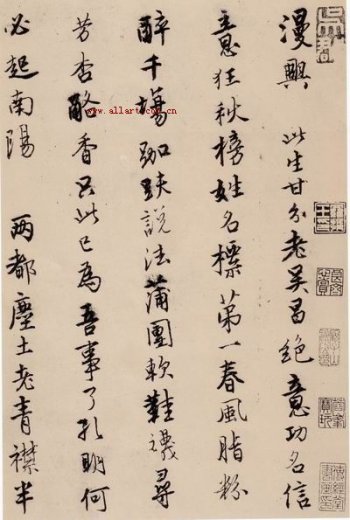 漫興 此生甘分老吴昌絕意功名信
意狂秋榜姓名標第一春風脂粉
醉千場跏趺說法蒲團軟鞋襪尋
芳杏酪香只此已為吾事了孔明何
必起南陽 兩都塵土老青襟半